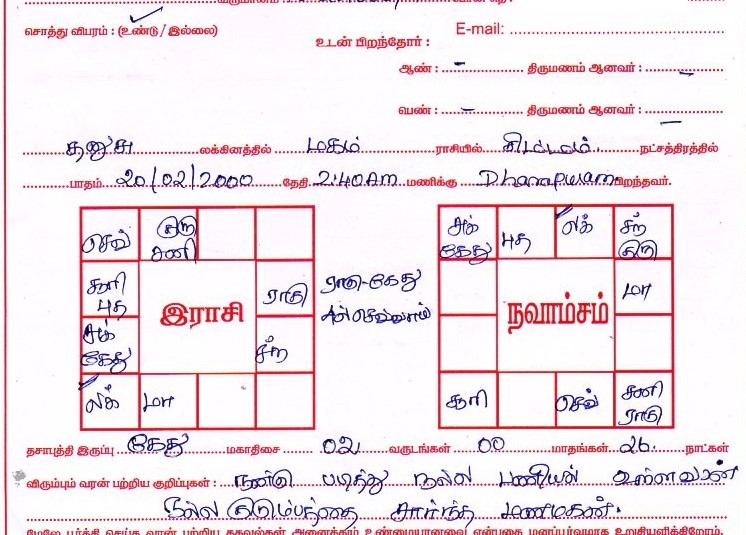 சொத்து விபரம் : (உண்டு / இல்லை)
E-mail:
உடன் பிறந்தோர் :
ஆண் : - திருமணம் ஆனவர் : -
பெண் : - திருமணம் ஆனவர் : -
தனுசு லக்கினத்தில் மகம் ராசியில் சிம்மம் நட்சத்திரத்தில்
பாதம் 20/02/2000 தேதி 2:40AM மணிக்கு Dharapuram பிறந்தவர்.
செவ் குரு சனி
சூரி புத ராகு
இராசி
சுக் கேது சந்
லக் மா
ராகு-கேது
சுக் கேது புத லக் சந் குரு
மா
நவாம்சம்
சூரி செவ் சனி ராகு
தசாபுத்தி இருப்பு கேது மகாதிசை 02 வருடங்கள் 00 மாதங்கள் 26 நாட்கள்
விரும்பும் வரன் பற்றிய குறிப்புகள் : நன்கு படித்து நல்ல பணியில் உள்ளவரான்
நல்ல குடும்பத்தை சார்ந்த மணமகன்.
மேலே பூர்த்தி செய்த வரன் பற்றிய தகவல்கள் அனைத்தும் உண்மையானவை என்பதை மனப்பூர்வமாக உறுதியளிக்கிறோம்.